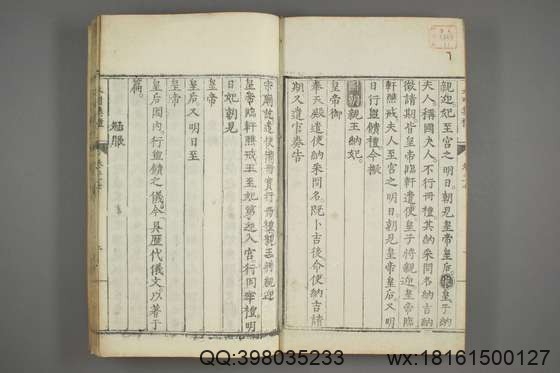 親迎妃至宮之明日朝見皇帝皇后皇子納
夫人稱國夫人不行冊禮其納采問名納吉納
徵請期皆皇帝臨軒遣使皇子將親迎皇帝臨
軒醮戒夫人至宮之明日朝見皇帝皇后又明
日行盥饋禮今擬
國朝親王納妃
皇帝御
奉天殿遣使納采問名既卜吉後令使納吉請
期又遣官奏告
宗廟訖遣使備冊寶行冊禮親王將親迎
皇帝臨軒醮戒王至妃第迎入宮行同牢禮明
日妃朝見
皇帝
皇后又明日至
皇帝
皇后閤內行盥饋之儀今具歷代儀文以著于
篇
冕服
QQ:398035233
wx:18161500127